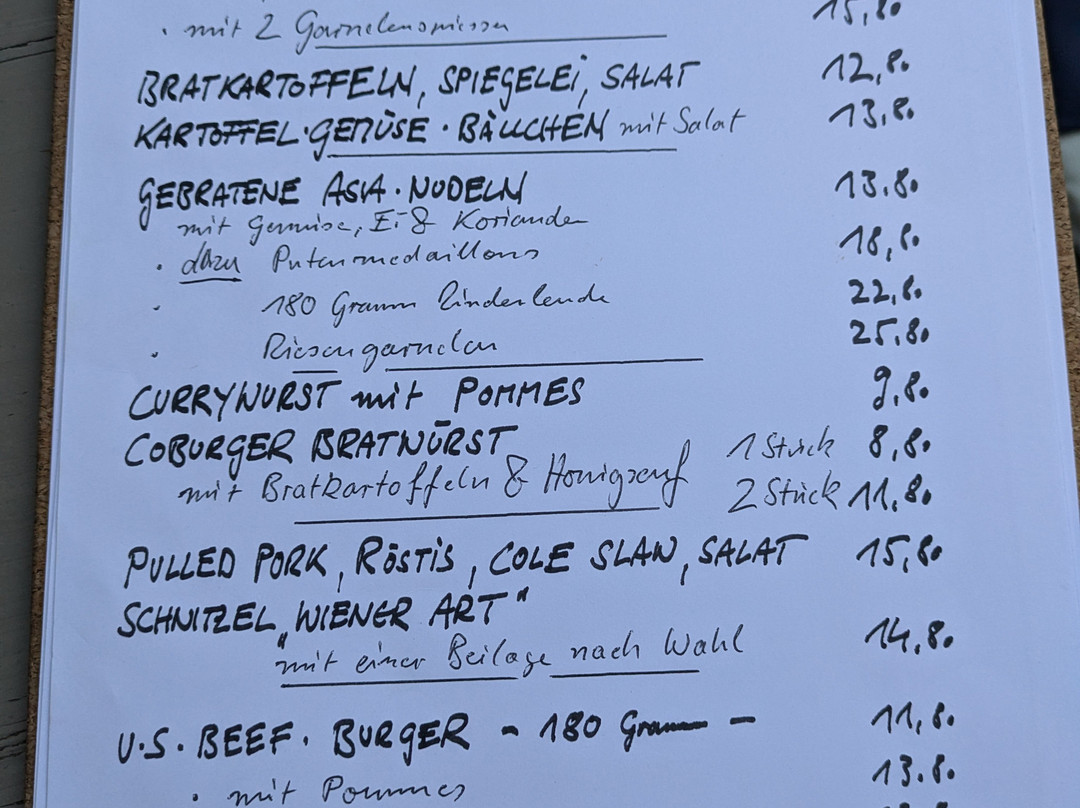 · mit 2 Garnelenspiessen 15,80
BRATKARTOFFELN, SPIEGELEI, SALAT 12,80
KARTOFFEL·GEMÜSE·BÄUCHEN mit Salat 13,80
GEBRATENE ASIA·NUDELN 13.80
mit Gemüse, Ei & Koriander
· dazu Putenmedaillons 18,80
· 180 Gramm Rinderlende 22,80
· Riesengarnelen 25,80
CURRYWURST mit POMMES 9,80
COBURGER BRATWÜRST 1 Stück 8,80
mit Bratkartoffeln & Honigsenf 2 Stück 11,80
PULLED PORK, RÖSTIS, COLE SLAW, SALAT 15,80
SCHNITZEL „WIENER ART"
mit einer Beilage nach Wahl 14,80
U.S. BEEF· BURGER - 180 Gramm - 11,80
· mit Pommes 13.80